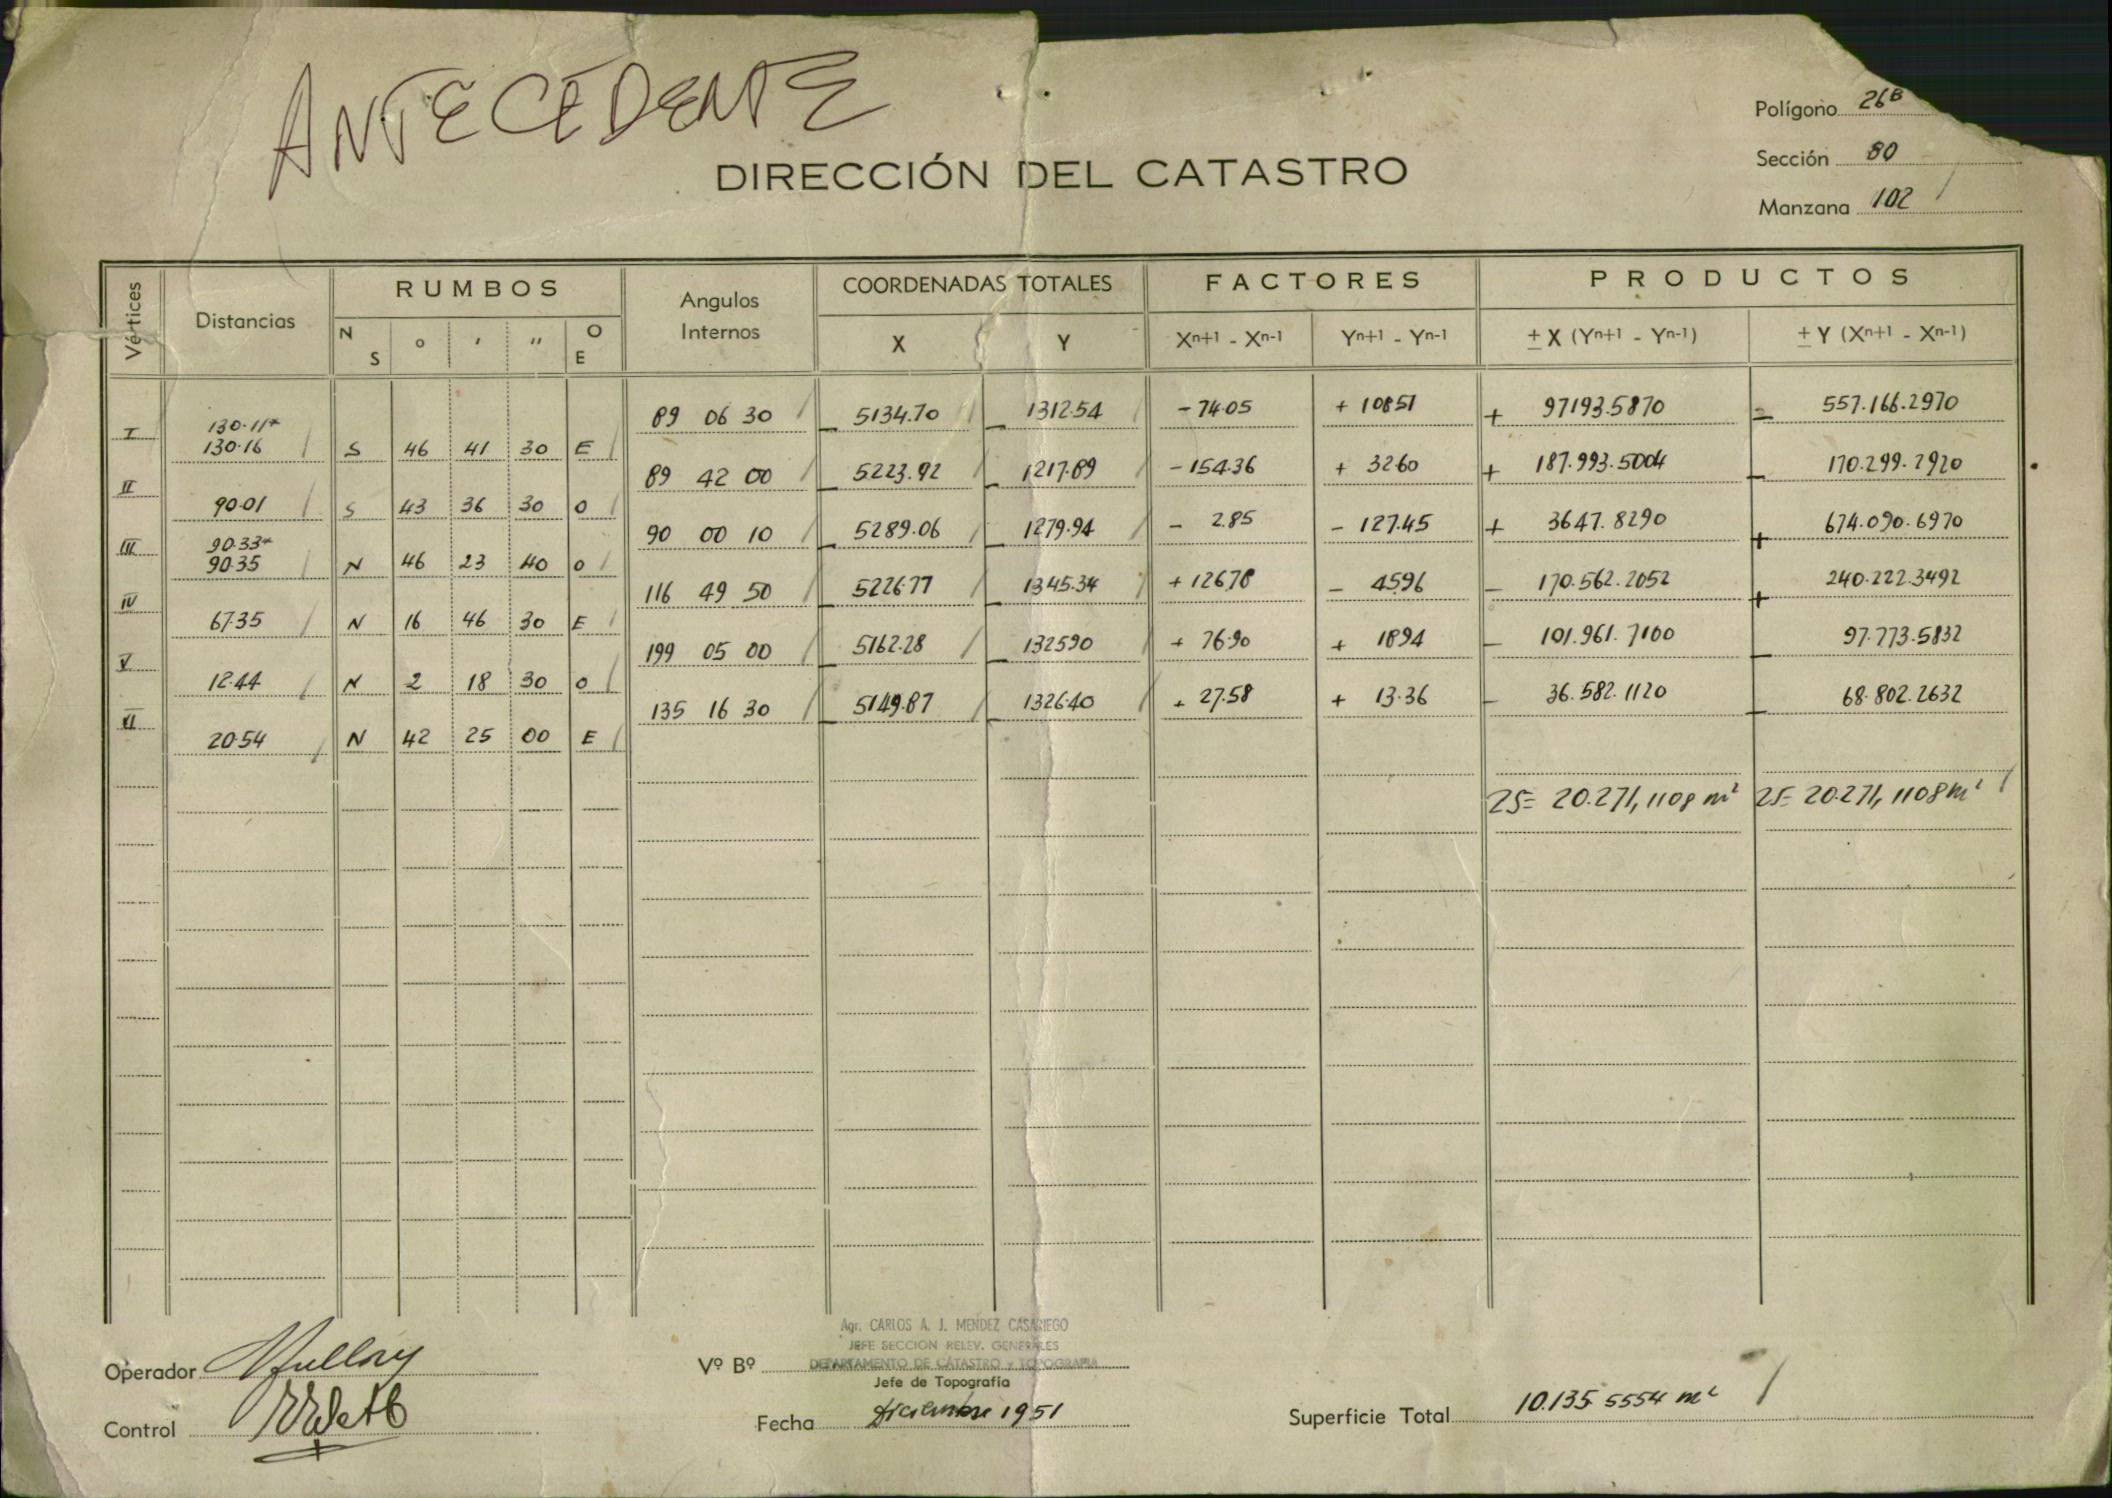 ANTECEDENTE
DIRECCIÓN DEL CATASTRO
Polígono 26B
Sección 80
Manzana 102
Vértices Distancias RUMBOS Angulos Internos COORDENADAS TOTALES FACTORES PRODUCTOS
N S ° ' " O E X Y Xⁿ⁺¹ - Xⁿ⁻¹ Yⁿ⁺¹ - Yⁿ⁻¹ ± X (Yⁿ⁺¹ - Yⁿ⁻¹) ± Y (Xⁿ⁺¹ - Xⁿ⁻¹)
89 06 30 - 5134.70 - 1312.54 - 74.05 + 10851 + 97193.5870 - 557.166.2970
I 130.11*
130.16 S 46 41 30 E
89 42 00 - 5223.92 - 1217.89 - 154.36 + 3260 + 187.993.5004 - 170.299.2920
II
90.01 S 43 36 30 O
90 00 10 - 5289.06 - 1279.94 - 2.85 - 127.45 + 3647.8290 + 674.090.6970
III 90.33*
90.35 N 46 23 40 O
116 49 50 - 522677 - 1345.34 + 12678 - 4596 - 170.562.2052 + 240.222.3492
IV
67.35 N 16 46 30 E
199 05 00 - 5162.28 - 132590 + 76.90 + 1894 - 101.961.7100 - 97.773.5832
V
12.44 N 2 18 30 O
135 16 30 - 5149.87 - 1326.40 + 27.58 + 13.36 - 36.582.1120 - 68.802.2632
VI
20.54 N 42 25 00 E
2S= 20.271,1108 m² 2S= 20.271,1108 m²
Agr. CARLOS A. J. MENDEZ CASARIEGO
JEFE SECCION RELEV. GENERALES
Operador Vº Bº DEPARTAMENTO DE CATASTRO y TOPOGRAFIA
Jefe de Topografía
Control Fecha Diciembre 1951 Superficie Total 10.135.5554 m²